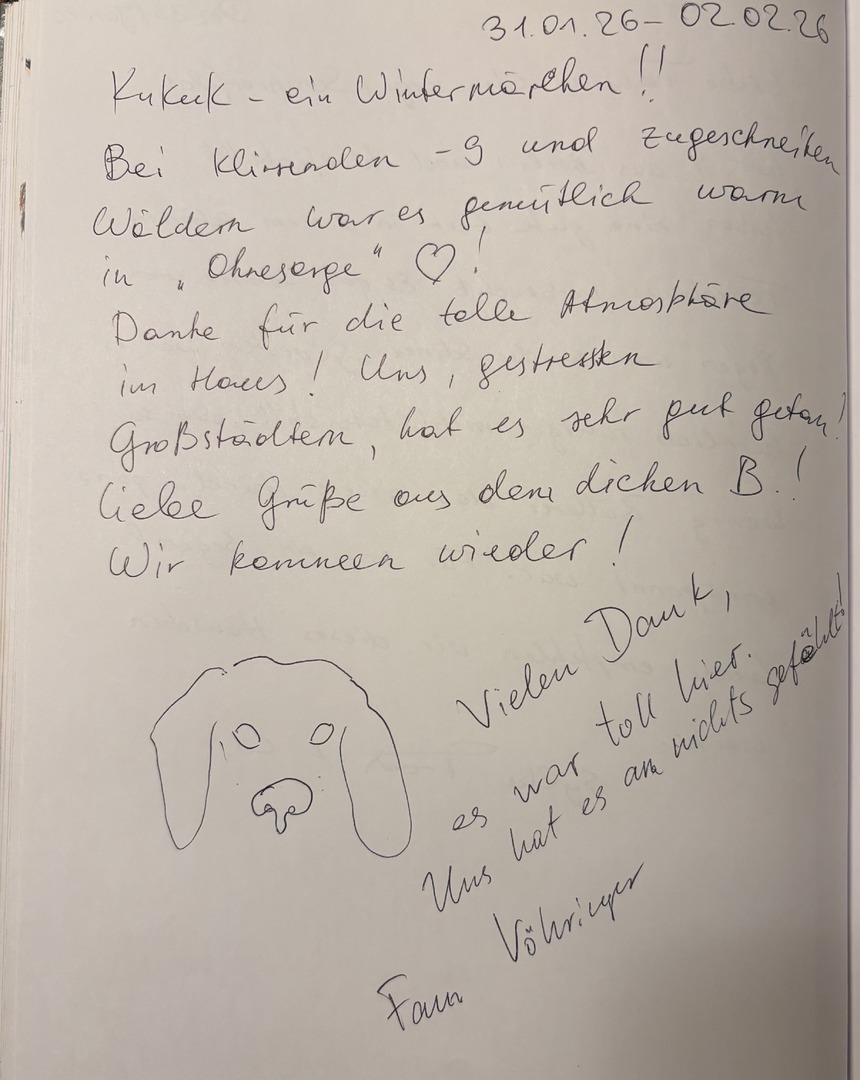 31.01.26 – 02.02.26
Kukuk – ein Wintermärchen!!
Bei klirrenden -9 und zugeschneiten
Wäldern war es gemütlich warm
in „Ohnesorge“ ♡!
Danke für die tolle Atmosphäre
im Haus! Uns, gestressten
Großstädtern, hat es sehr gut getan!
Liebe Grüße aus dem dicken B.!
Wir kommen wieder!
Vielen Dank,
es war toll hier.
Uns hat es an nichts gefehlt!
Fam Vöhringer